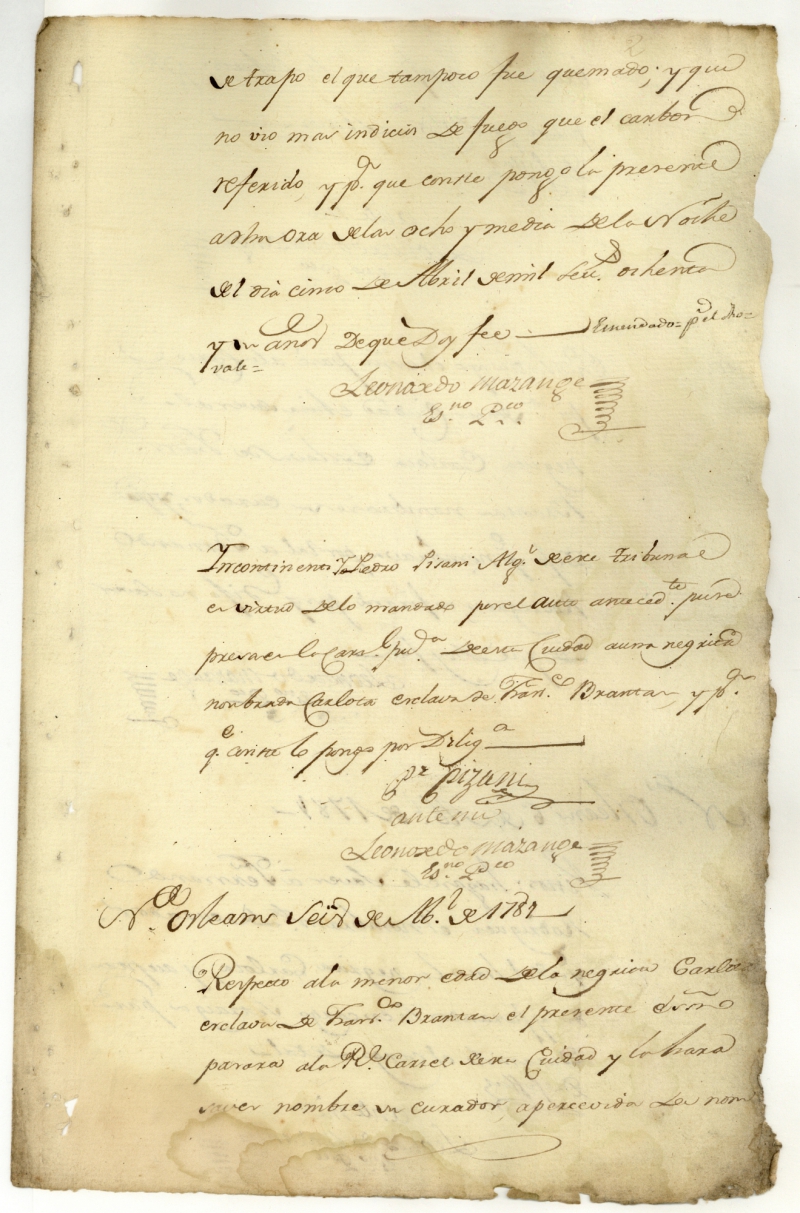 de trapo el que tampoco fue quemado; y que
no vio mas indicios de fuego que el carbon
referido, y p.ª que conste pongo la presente
a dha ora de las ocho y media de la Noche
del dia cinco de Abril de mil Setz.s ochenta
y un años De que Doy fee Emendado= p.r el dho=
vale=
Leonardo Mazange
Es.no P.co
Yncontinenti Yo Pedro Pisani Alg.l de este tribunal
en virtud de lo mandado por el auto anteced.te puse
presa en la Carz.l pu.ca De esta Ciudad a una negrita
nonbrada Carlota esclava de Fran.co Brantan, y p.ª
q.e conste lo pongo por Dilig.a
P.e Pizani
ante mi
Leonardo Mazange
Es.no P.co
N.a Orleans Seis de Ab.l de 1781
Respecto a la menor edad de la negrita Carlota
esclava de Fran.co Brantan el presente Essno
pasara a la R.l Carcel de esta Ciudad y la hara
saver nombre un curador, apercevida de nom